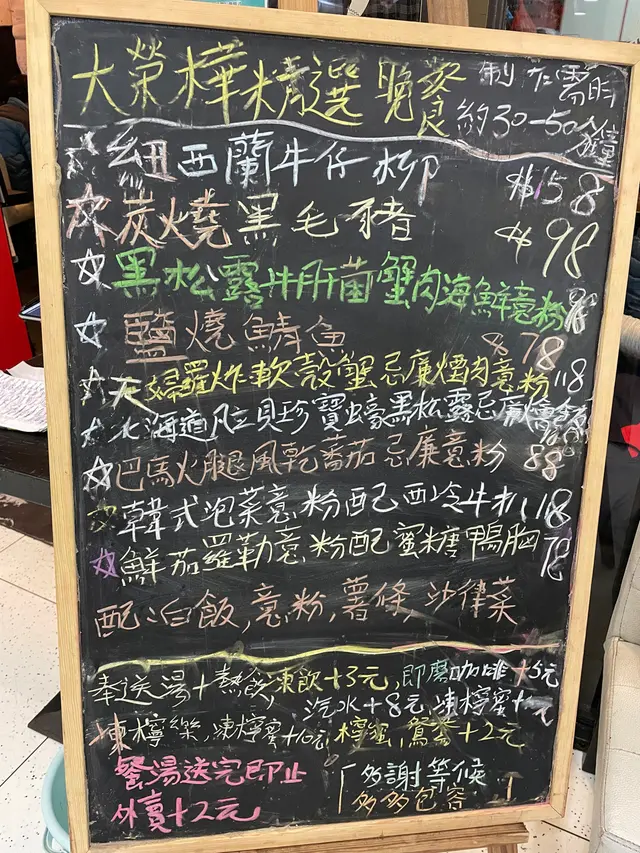 大榮華精選 晚餐 制作需時
約30-50分鐘
☆ 紐西蘭牛仔柳 $158
☆ 炭燒黑毛豬 $98
☆ 黑松露牛肝菌蟹肉海鮮意粉 98
☆ 鹽燒鯖魚 $78
☆ 天婦羅炸軟殼蟹忌廉煙肉意粉 118
☆ 北海道帆立貝珍寶蠔黑松露忌廉燴
☆ 巴馬火腿風乾番茄忌廉意粉 88
☆ 韓式泡菜意粉配西冷牛扒 118
☆ 鮮茄羅勒意粉配蜜糖鴨胸 78
配:白飯,意粉,薯條,沙律菜
奉送湯+熱飲,凍飲+3元,即磨咖啡+5元
汽水+8元,凍檸蜜
凍檸樂,凍檸蜜+10元,檸蜜,鴛鴦+2元
餐湯送完即止
外賣+2元
「多謝等候
多多包容」